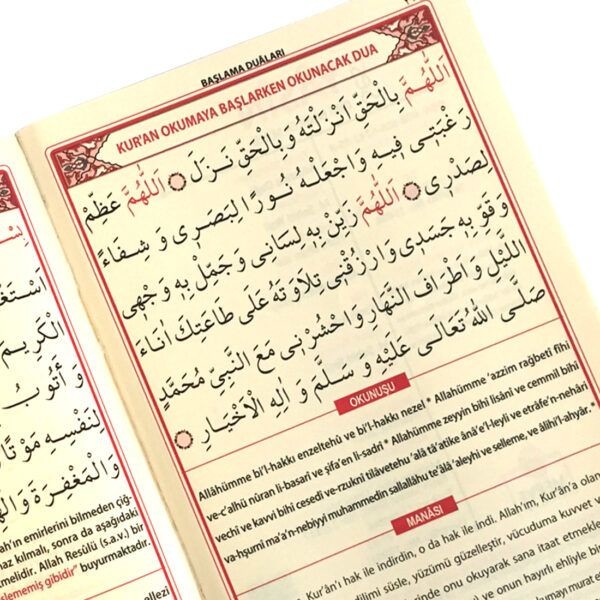 BAŞLAMA DUÂLARI
KUR'AN OKUMAYA BAŞLARKEN OKUNACAK DUA
اَللّٰهُمَّ بِالْحَقِّ اَنْزَلْتَهُ وَبِالْحَقِّ نَزَلَ ۞ اَللّٰهُمَّ عَظِّمْ
رَغْبَتٖى فٖيهِ وَاجْعَلْهُ نُورًا لِبَصَرٖى وَشِفَاءً
لِصَدْرٖى ۞ اَللّٰهُمَّ زَيِّنْ بِهٖ لِسَانٖى وَجَمِّلْ بِهٖ وَجْهٖى
وَقَوِّ بِهٖ جَسَدٖى وَارْزُقْنٖى تِلَاوَتَهُ عَلٰى طَاعَتِكَ اٰنَاءَ
الَّيْلِ وَاَطْرَافَ النَّهَارِ وَاحْشُرْنٖى مَعَ النَّبِىِّ مُحَمَّدٍ
صَلَّى اللّٰهُ تَعَالٰى عَلَيْهِ وَسَلَّمَ وَاٰلِهِ الْاَخْيَارِ ۞
OKUNUŞU
Allâhümme bi'l-hakkı enzeltehü ve bi'l-hakkı nezel * Allahümme 'azzim rağbetî fîhi
ve-c'alhü nûran li-basarî ve şifa'en li-sadrî * Allahümme zeyyin bihî lisânî ve cemmil bihî
vechî ve kavvi bihî cesedî ve-rzuknî tilâvetehu 'alâ tâ'atike ânâ'e'l-leyli ve etrâfe'n-nehâri
va-hşurnî ma'a'n-nebiyyi muhammedin sallallâhu te'âlâ 'aleyhi ve selleme, ve âlihi'l-ahyâr. *
MANÂSI
Kur'ân'ı hak ile indirdin, o da hak ile indi. Allah'ım, Kur'ân'a olan
dilimi süsle, yüzümü güzelleştir, vücuduma kuvvet
okuyarak sana itaat etmekle
ve onun hayırlı ehliyle
اَسْتَغْ
الْكَرٖيمَ
وَاَتُوبُ
لِنَفْسِهٖ مَوْتًا
وَالْمَغْفِرَةَ
emirlerini bilmeden
kılmalı, sonra da aşağıdaki
Allah Resûlü (s.a.v.) bir
gibidir" buyurmaktadır.